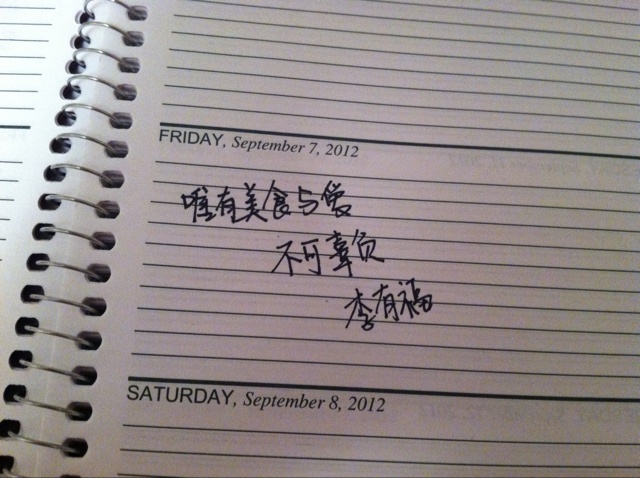 FRIDAY, September 7, 2012
唯有美食与爱
不可辜负
李有福
SATURDAY, September 8, 2012